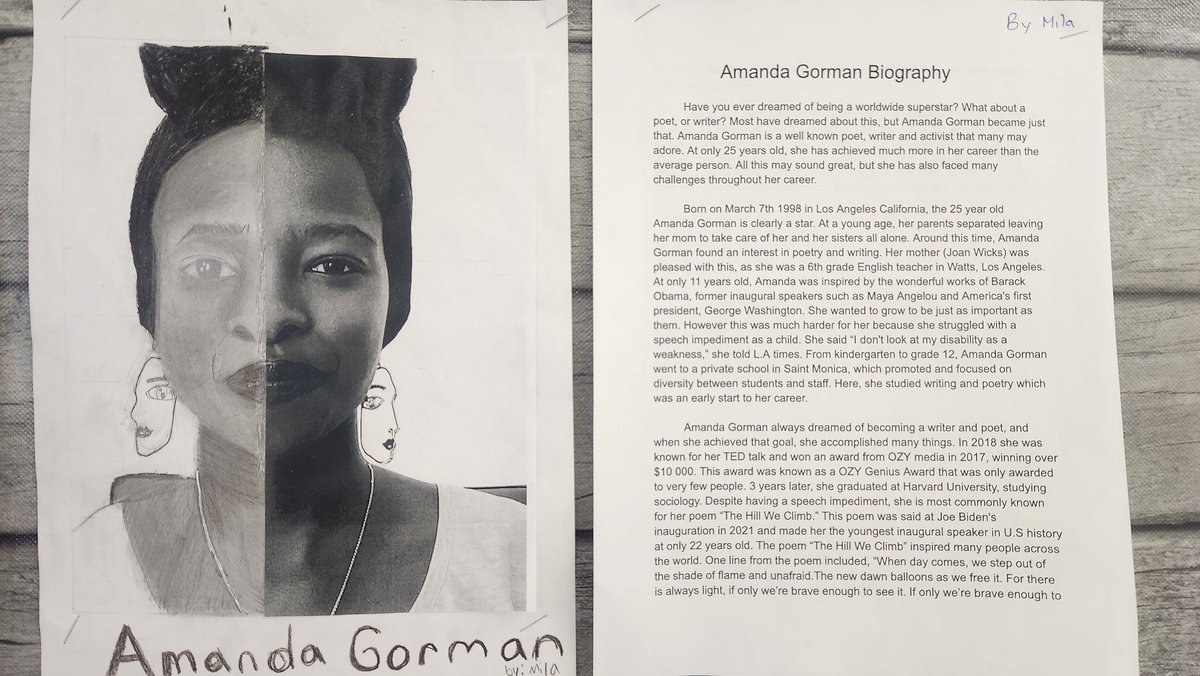 Amanda Gorman
by: Mila
By Mila
Amanda Gorman Biography
Have you ever dreamed of being a worldwide superstar? What about a
poet, or writer? Most have dreamed about this, but Amanda Gorman became just
that. Amanda Gorman is a well known poet, writer and activist that many may
adore. At only 25 years old, she has achieved much more in her career than the
average person. All this may sound great, but she has also faced many
challenges throughout her career.
Born on March 7th 1998 in Los Angeles California, the 25 year old
Amanda Gorman is clearly a star. At a young age, her parents separated leaving
her mom to take care of her and her sisters all alone. Around this time, Amanda
Gorman found an interest in poetry and writing. Her mother (Joan Wicks) was
pleased with this, as she was a 6th grade English teacher in Watts, Los Angeles.
At only 11 years old, Amanda was inspired by the wonderful works of Barack
Obama, former inaugural speakers such as Maya Angelou and America's first
president, George Washington. She wanted to grow to be just as important as
them. However this was much harder for her because she struggled with a
speech impediment as a child. She said “I don't look at my disability as a
weakness,” she told L.A times. From kindergarten to grade 12, Amanda Gorman
went to a private school in Saint Monica, which promoted and focused on
diversity between students and staff. Here, she studied writing and poetry which
was an early start to her career.
Amanda Gorman always dreamed of becoming a writer and poet, and
when she achieved that goal, she accomplished many things. In 2018 she was
known for her TED talk and won an award from OZY media in 2017, winning over
$10 000. This award was known as a OZY Genius Award that was only awarded
to very few people. 3 years later, she graduated at Harvard University, studying
sociology. Despite having a speech impediment, she is most commonly known
for her poem “The Hill We Climb.” This poem was said at Joe Biden's
inauguration in 2021 and made her the youngest inaugural speaker in U.S history
at only 22 years old. The poem “The Hill We Climb” inspired many people across
the world. One line from the poem included, “When day comes, we step out of
the shade of flame and unafraid.The new dawn balloons as we free it. For there
is always light, if only we're brave enough to see it. If only we're brave enough to